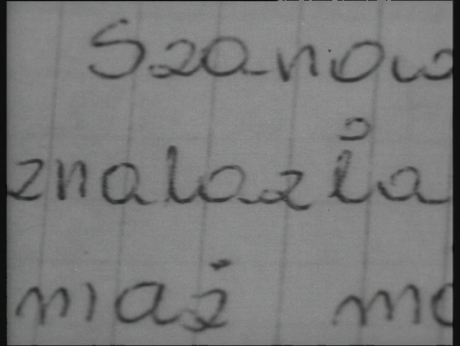 Szanow
znalazła
maż mo